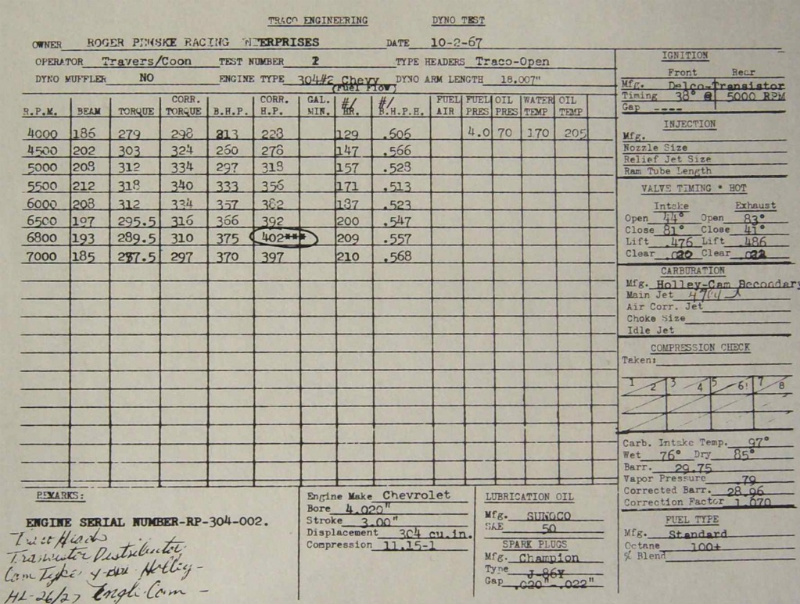 TRACO ENGINEERING DYNO TEST
OWNER ROGER PENSKE RACING ENTERPRISES DATE 10-2-67
OPERATOR Travers/Coon TEST NUMBER 2 TYPE HEADERS Traco-Open
DYNO MUFFLER NO ENGINE TYPE 304#2 Chevy DYNO ARM LENGTH 18.007"
(Fuel Flow)
R.P.M. BEAM TORQUE CORR. TORQUE B.H.P. CORR. H.P. GAL. MIN. #/ HR. #/ B.H.P.H. FUEL AIR FUEL PRES OIL PRES WATER TEMP OIL TEMP
4000 186 279 298 213 228 129 .606 4.0 70 170 205
4500 202 303 324 260 278 147 .566
5000 208 312 334 297 318 157 .528
5500 212 318 340 333 356 171 .513
6000 208 312 334 357 382 187 .523
6500 197 295.5 316 366 392 200 .547
6800 193 289.5 310 375 402*** 209 .557
7000 185 277.5 297 370 397 210 .568
IGNITION
Front Rear
Mfg. Delco-Transistor
Timing 38° @ 5000 RPM
Gap ----
INJECTION
Mfg.
Nozzle Size
Relief Jet Size
Ram Tube Length
VALVE TIMING * HOT
Intake Exhaust
Open 44° Open 83°
Close 81° Close 41°
Lift .476 Lift .486
Clear .020 Clear .022
CARBURATION
Mfg. Holley-Cam Secondary
Main Jet
Air Corr. Jet
Choke Size
Idle Jet
COMPRESSION CHECK
Taken:
1 2 3 4 5 6 7 8
Carb. Intake Temp. 97°
Wet 76° Dry 85°
Barr. 29.75
Vapor Pressure .79
Corrected Barr. 28.96
Correction Factor 1.070
FUEL TYPE
Mfg. Standard
Octane 100+
% Blend
REMARKS:
ENGINE SERIAL NUMBER-RP-304-002.
Traco Heads
Transistor Distributor
Cam Type Holley-
HL-26/27 Engle Cam -
Engine Make Chevrolet
Bore 4.020"
Stroke 3.00"
Displacement 304 cu.in.
Compression 11.15-1
LUBRICATION OIL
Mfg. SUNOCO
SAE 50
SPARK PLUGS
Mfg. Champion
Type J-86Y
Gap .020"-.022"